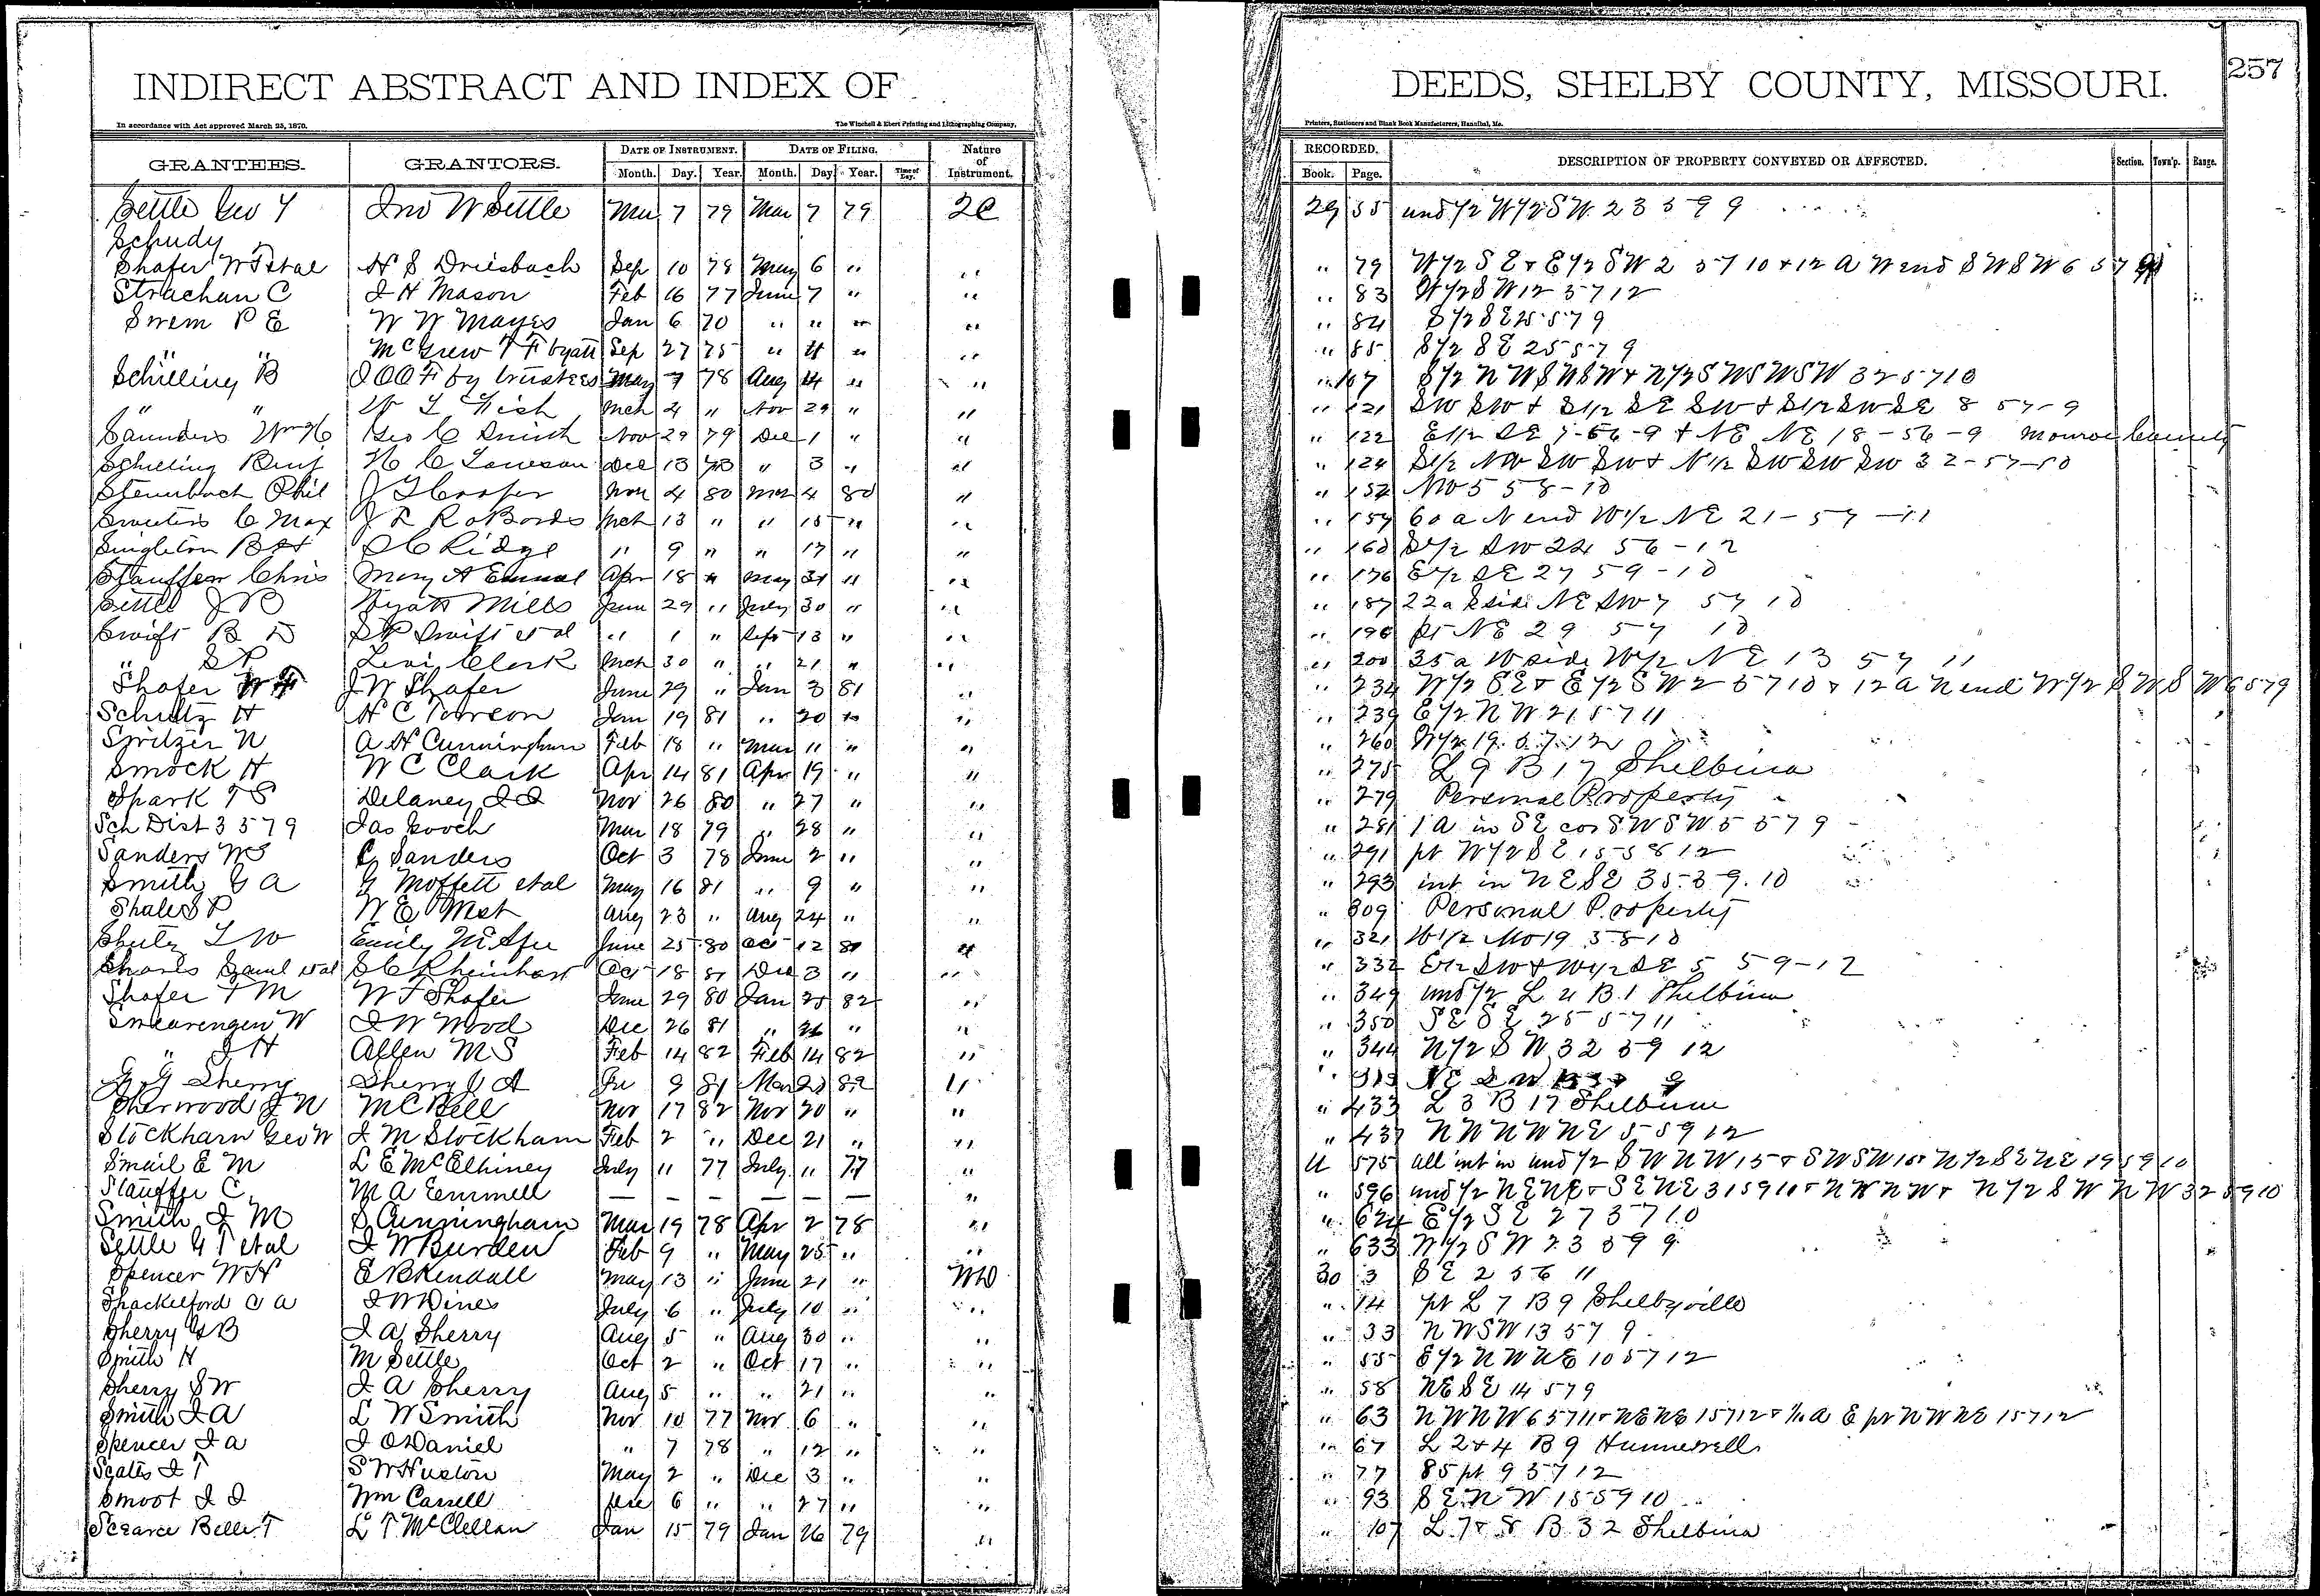 INDIRECT ABSTRACT AND INDEX OF DEEDS, SHELBY COUNTY, MISSOURI. 257
In accordance with Act approved March 25, 1870. The Winchell & Ebert Printing and Lithographing Company, Printers, Stationers and Blank Book Manufacturers, Hannibal, Mo.
GRANTEES. GRANTORS. DATE OF INSTRUMENT. DATE OF FILING. Nature of Instrument. RECORDED. DESCRIPTION OF PROPERTY CONVEYED OR AFFECTED. Section. Town'p. Range.
Month. Day. Year. Month. Day. Year. Time of Day. Book. Page.
Settle Geo Y Jno W Settle Mar 7 79 Mar 7 79 2C 29 55 und 1/2 W 1/2 SW 23 59 9
Schudy
Shafer W F et al H S Driesbach Sep 10 78 May 6 " " " 79 W 1/2 S E & E 1/2 SW 2 57 10 & 12 A W end SW SW 6 57 9
Strachan C J H Mason Feb 16 77 June 7 " " " 83 W 1/2 SW 12 57 12
Swem P E W W Mayes Jan 6 70 " " " " " 84 S 1/2 SE 25 57 9
" " McGrew T F by att Sep 27 75 " " " " " 85 S 1/2 SE 25 57 9
Schilling B I O O F by trustees May 7 78 Aug 14 " " " 107 S 1/2 NW SW SW & N 1/2 SW SW SW 32 57 10
" " W L Fish Mch 4 " Nov 29 " " " 121 SW SW & S 1/2 SE SW & S 1/2 SW SE 8 57-9
Saunders Wm H Geo C Smith Nov 29 79 Dec 1 " " " 122 E 1/2 SE 7-56-9 & NE NE 18-56-9 Monroe County
Schilling Benj H C Towson Dec 13 " 3 " " " 124 S 1/2 NW SW SW & N 1/2 SW SW SW 32-57-10
Steinbach Phil J T Cooper Mar 4 80 Mar 4 80 " " 152 NW 5 58-10
C Max J L RoBards Mch 13 " " 15 " " " 159 60 a N end W 1/2 NE 21-57-11
Singleton B H S C Ridge " 9 " " 17 " " " 160 S 1/2 SW 24 56-12
Stauffer Chris Mary A Emmel Apr 18 " May 31 " " " 176 E 1/2 SE 27 59-10
Settle J B Wyatt Mills June 29 " July 30 " " " 187 22 a S side NE SW 7 57 10
Swift B D S P Swift et al " 1 " Sept 13 " " " 196 pt NE 29 57 10
" S P Levi Clark Mch 30 " " 21 " " " 200 35 a W side W 1/2 NE 13 57 11
Shafer W F J W Shafer June 29 " Jan 3 81 " " 234 W 1/2 SE & E 1/2 SW 2 57 10 & 12 a N end W 1/2 SW SW 6 57 9
Schultz H H C Towson Jan 19 81 " 20 " " " 239 E 1/2 NW 21 57 11
Spritzer N A H Cunningham Feb 18 " Mar 11 " " " 260 W 1/2 19 57 12
Smock H W C Clark Apr 14 81 Apr 19 " " " 275 L 9 B 17 Shelbina
Spark T S Delaney J J Nov 26 80 " 27 " " " 279 Personal Property
Sch Dist 3 57 9 Jas Gooch Mar 18 79 " 28 " " " 281 1 A in SE cor SW SW 5 57 9
Sanders W S C Sanders Oct 3 78 June 2 " " " 291 pt W 1/2 SE 15 58 12
Smith G A G Moffett et al May 16 81 " 9 " " " 293 int in NE SE 35 59 10
Shale S P W E West Aug 23 " Aug 24 " " " 309 Personal Property
Sheetz L W Emily McAfee June 25 80 Oct 12 81 " " 321 W 1/2 NW 19 58-10
Shoots Saml et al S C Rheinhart Oct 18 81 Dec 3 " " " 332 E 1/2 SW & W 1/2 SE 5 59-12
Shafer T M W F Shafer June 29 80 Jan 25 82 " " 349 und 1/2 L 4 B 1 Shelbina
Swearengen W J W Wood Dec 26 81 " 26 " " " 350 SE SE 25 57 11
" J H Allen M S Feb 14 82 Feb 14 82 " " 344 N 1/2 SW 32 59 12
G G Sherry Sherry J A 9 81 Mar 20 82 " " NE SW 9
Sherwood J N M C Bell Nov 17 82 Nov 20 " " " 433 L 3 B 17 Shelbina
Stockham Geo W J M Stockham Feb 2 " Dec 21 " " " 437 NW NW NE 5 59 12
Smail E M L E McElhiney July 11 77 July 11 77 " U 575 all int in und 1/2 SW NW 15 & SW SW 10 & N 1/2 SE NE 19 59 10
Stauffer C M A Emmell — — — — — — " " 596 und 1/2 NE NE & SE NE 31 59 10 & NW NW & N 1/2 SW NW 32 59 10
Smith J M S Cunningham Mar 19 78 Apr 2 78 " " 624 E 1/2 SE 27 37 10
Settle G T et al J W Burden Feb 9 " May 25 " " " 633 W 1/2 SW 23 59 9
Spencer W H E B Kendall May 13 " June 21 " WD 30 3 SE 2 56 11
Shackelford C A J W Dines July 6 " July 10 " " " 14 pt L 7 B 9 Shelbyville
Sherry G B J A Sherry Aug 5 " Aug 30 " " " 33 NW SW 13 57 9
Smith H M Settle Oct 2 " Oct 17 " " " 55 E 1/2 NW NE 10 57 12
Sherry S W J A Sherry Aug 5 " " 21 " " " 58 NE SE 14 57 9
Smith J A L W Smith Nov 10 77 Nov 6 " " " 63 NW NW 6 57 11 & NE NE 1 57 12 & A E pt NW NE 1 57 12
Spencer J A J O Daniel " 7 78 " 12 " " " 67 L 2 & 4 B 9 Hunnewell
Scates J T S W Huston May 2 " Dec 3 " " " 77 85 pt 9 57 12
Smoot J J Wm Carrell Dec 6 " " 27 " " " 93 SE NW 15 59 10
Scearce Belle T L T McClellan Jan 15 79 Jan 26 79 " " 107 L 7 & 8 B 32 Shelbina